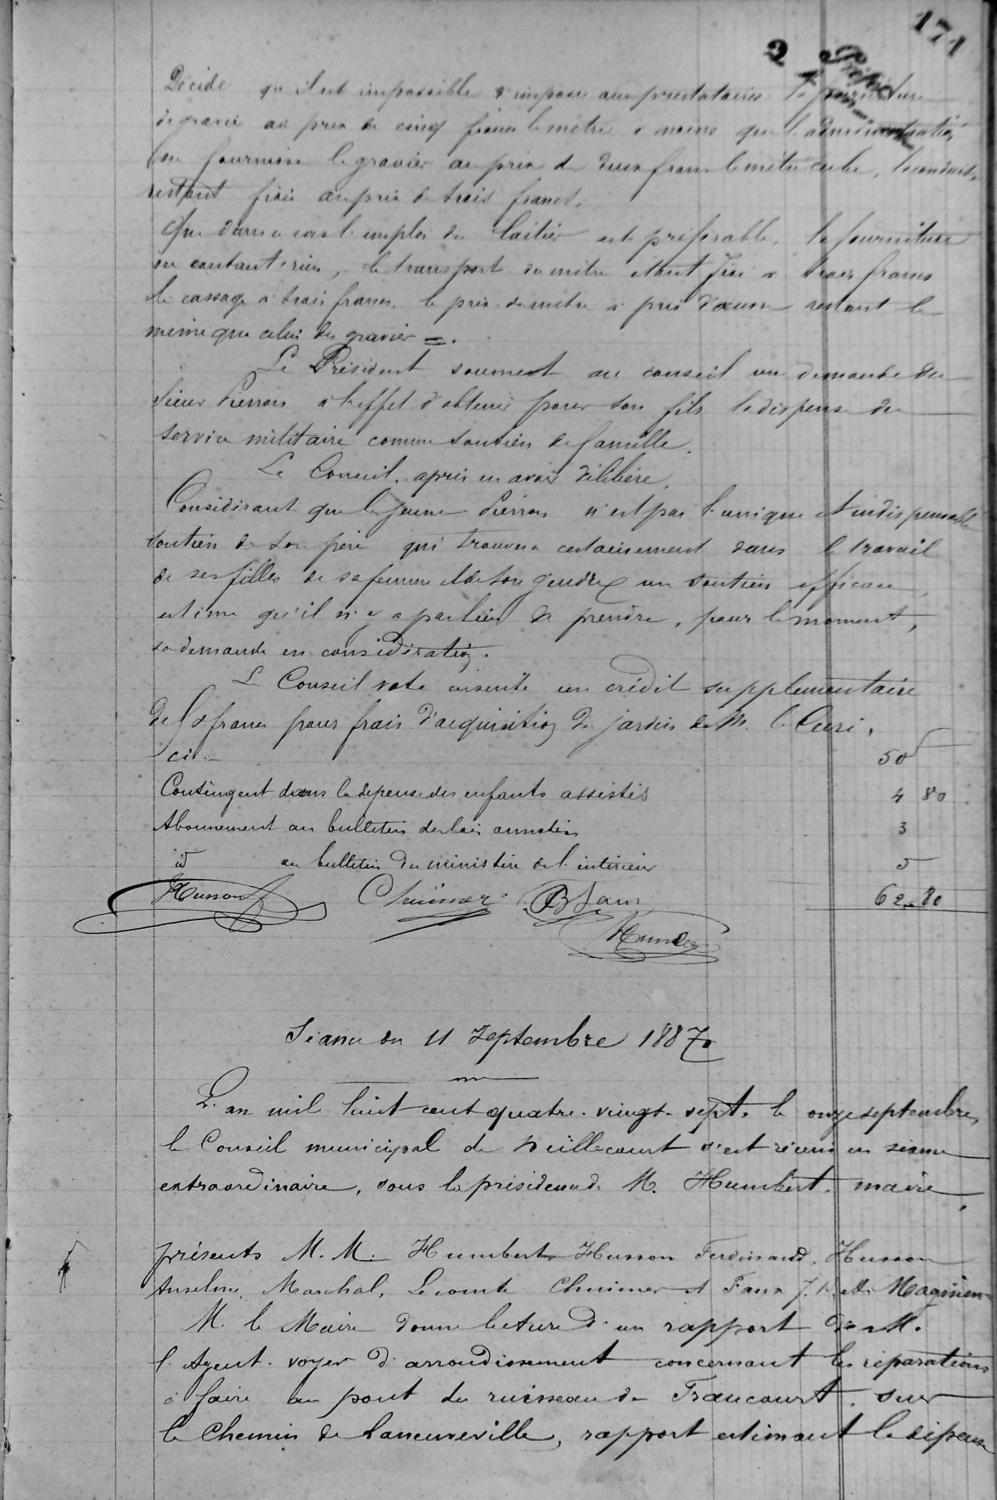 171
2
Décide qu'il est impossible d'imposer aux prestataires la fourniture
de gravier au prix de cinq francs le mètre à moins que l'administration
ne fournisse le gravier au prix de deux francs le mètre cube, la conduite
restant fixée au prix de trois francs.
Que dans ce cas l'emploi du laitier est préférable, la fourniture
ne coutant rien, le transport du mètre étant fixé à trois francs
le cassage à trois francs, le prix du mètre à pied d'œuvre restant le
même que celui du gravier =.
Le Président soumet au conseil une demande du
sieur Pierron à l'effet d'obtenir pour son fils la dispense du
service militaire comme soutien de famille.
Le Conseil, après en avoir délibéré,
Considérant que le jeune Pierron n'est pas l'unique et indispensable
soutien de son père qui trouvera certainement dans le travail
de ses filles de sa femme et de son gendre un soutien efficace,
estime qu'il n'y a pas lieu de prendre, pour le moment,
sa demande en considération.
Le Conseil vote ensuite un crédit supplémentaire
de 50 francs pour frais d'acquisition du jardin de M. le Curé,
ci 50
Contingent dans la dépense des enfants assistés 4 80
Abonnement au bulletin des lois annotées 3
id au bulletin du ministère de l'intérieur 5
62.80
Husson Chuinor B Faux
Humbert
Séance du 11 Septembre 1887
L'an mil huit cent quatre-vingt-sept, le onze septembre,
le Conseil municipal de Neuillecourt s'est réuni en séance
extraordinaire, sous la présidence de M. Humbert, maire,
présents M. M. Humbert Husson Ferdinand, Husson
Anselme, Marchal, Lecomte Chuinor et Faux J. B. et Maginien
M. le Maire donne lecture d'un rapport de M.
l'Agent-voyer d'arrondissement concernant les réparations
à faire au pont du ruisseau de Francourt, sur
le Chemin de Laneuveville, rapport estimant la dépense